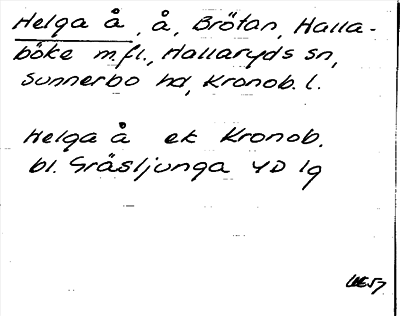 Helga å, å, Brötan, Halla-
böke m.fl., Hallaryds sn,
Sunnerbo hd, Kronob. l.
Helga å ek Kronob.
bl. Gräsljunga 4D 1g